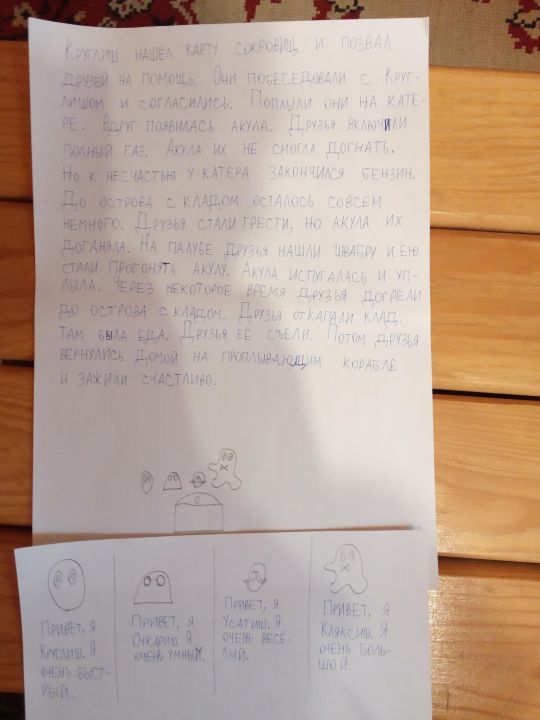 Круглиш нашёл карту сокровищ и позвал
друзей на помощь. Они побеседовали с Круг-
лишом и согласились. Поплыли они на кате-
ре. Вдруг появилась акула. Друзья включили
полный газ. Акула их не смогла догнать.
Но к несчастью у катера закончился бензин.
До острова с кладом осталось совсем
немного. Друзья стали грести, но акула их
доганяла. На палубе друзья нашли швабру и ею
стали прогонять акулу. Акула испугалась и уп-
лыла. Через некоторое время друзья догрели
до острова с кладом. Друзья откапали клад.
Там была еда. Друзья её съели. Потом друзья
вернулись домой на проплывающим корабле
и зажили счастливо.
Привет, я
Круглиш. Я
очень быст-
рый.
Привет, я
Очкариш. Я
очень умный.
Привет, я
Усатиш. Я
очень весё-
лый.
Привет, я
Кляксиш. Я
очень боль-
шой.